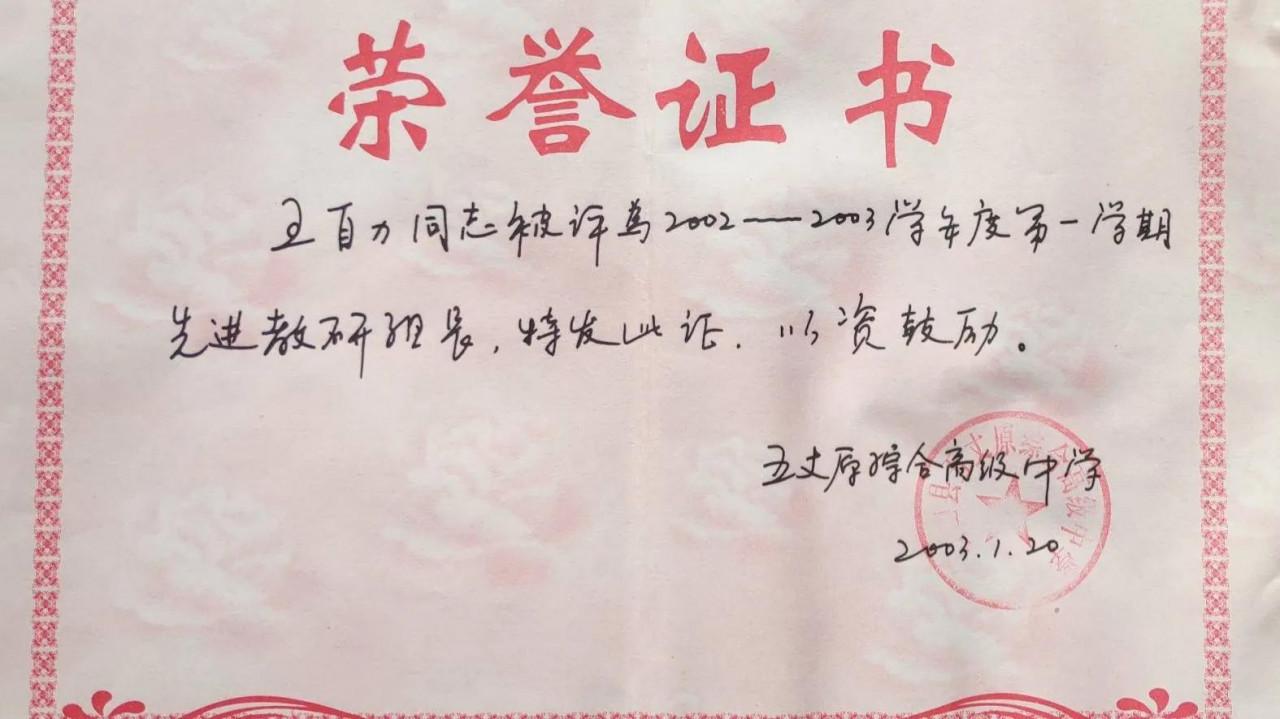 荣誉证书
王百力同志被评为2002——2003学年度第一学期
先进教研组长,特发此证.以资鼓励。
五丈原综合高级中学
2003.1.20